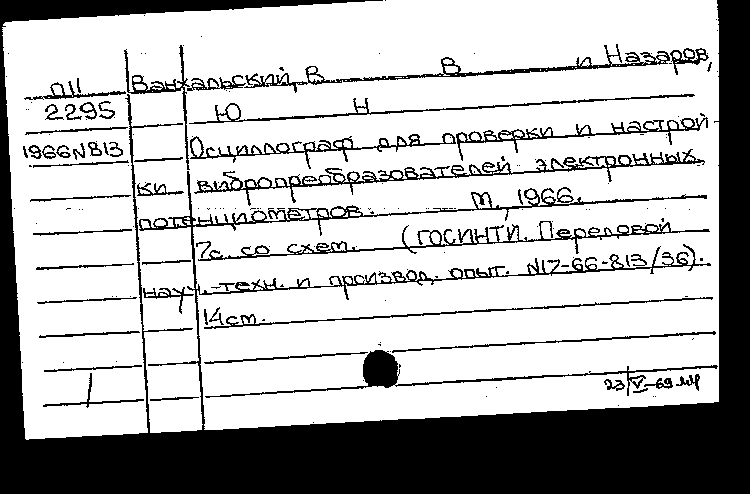 П11 Ванхальский, В В и Назаров,
2295 Ю Н
1966N813 Осциллограф для проверки и настрой-
ки вибропреобразователей электронных
потенциометров. М., 1966.
7с. со схем. (ГОСИНТИ. Передовой
науч.-техн. и производ. опыт. N17-66-813/36).
14см.
23/V-69